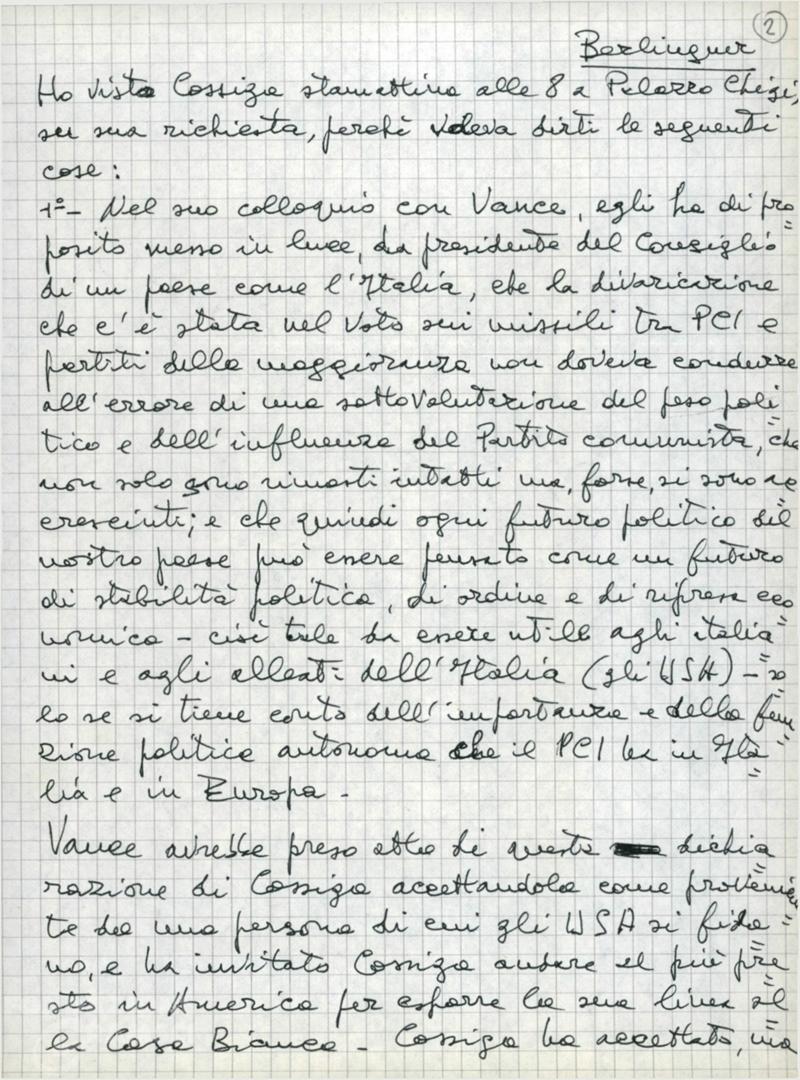 2
Berlinguer
Ho visto Cossiga stamattina alle 8 a Palazzo Chigi,
su sua richiesta, perché voleva dirti le seguenti
cose:
1°- Nel suo colloquio con Vance, egli ha di pro=
posito messo in luce, da presidente del Consiglio
di un paese come l'Italia, che la divaricazione
che c'è stata nel voto sui missili tra PCI e
partiti della maggioranza non doveva condurre
all'errore di una sottovalutazione del peso poli=
tico e dell'influenza del Partito comunista, che
non solo sono rimasti intatti ma, forse, si sono ac=
cresciuti; e che quindi ogni futuro politico del
nostro paese può essere pensato come un futuro
di stabilità politica, di ordine e di ripresa eco=
nomica - cioè tale da essere utile agli italia=
ni e agli alleati dell'Italia (gli USA) - so=
lo se si tiene conto dell'importanza e della fun=
zione politica autonoma che il PCI ha in Ita=
lia e in Europa -
Vance avrebbe preso atto di questa dichia=
razione di Cossiga accettandola come provenien=
te da una persona di cui gli USA si fida=
no, e ha invitato Cossiga andare al più pre=
sto in America per esporre la sua linea al=
la Casa Bianca - Cossiga ha accettato, ma